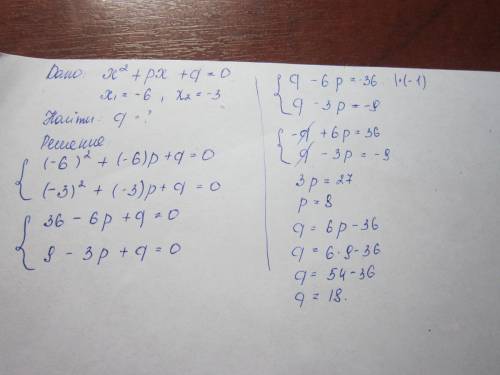 Дано: x² + px + q = 0
x₁ = -6, x₂ = -3
Найти: q = ?
Решение
(-6)² + (-6)p + q = 0
(-3)² + (-3)p + q = 0
36 - 6p + q = 0
9 - 3p + q = 0
q - 6p = -36 |·(-1)
q - 3p = -9
-q + 6p = 36
q - 3p = -9
3p = 27
p = 9
q = 6p - 36
q = 6·9 - 36
q = 54 - 36
q = 18.